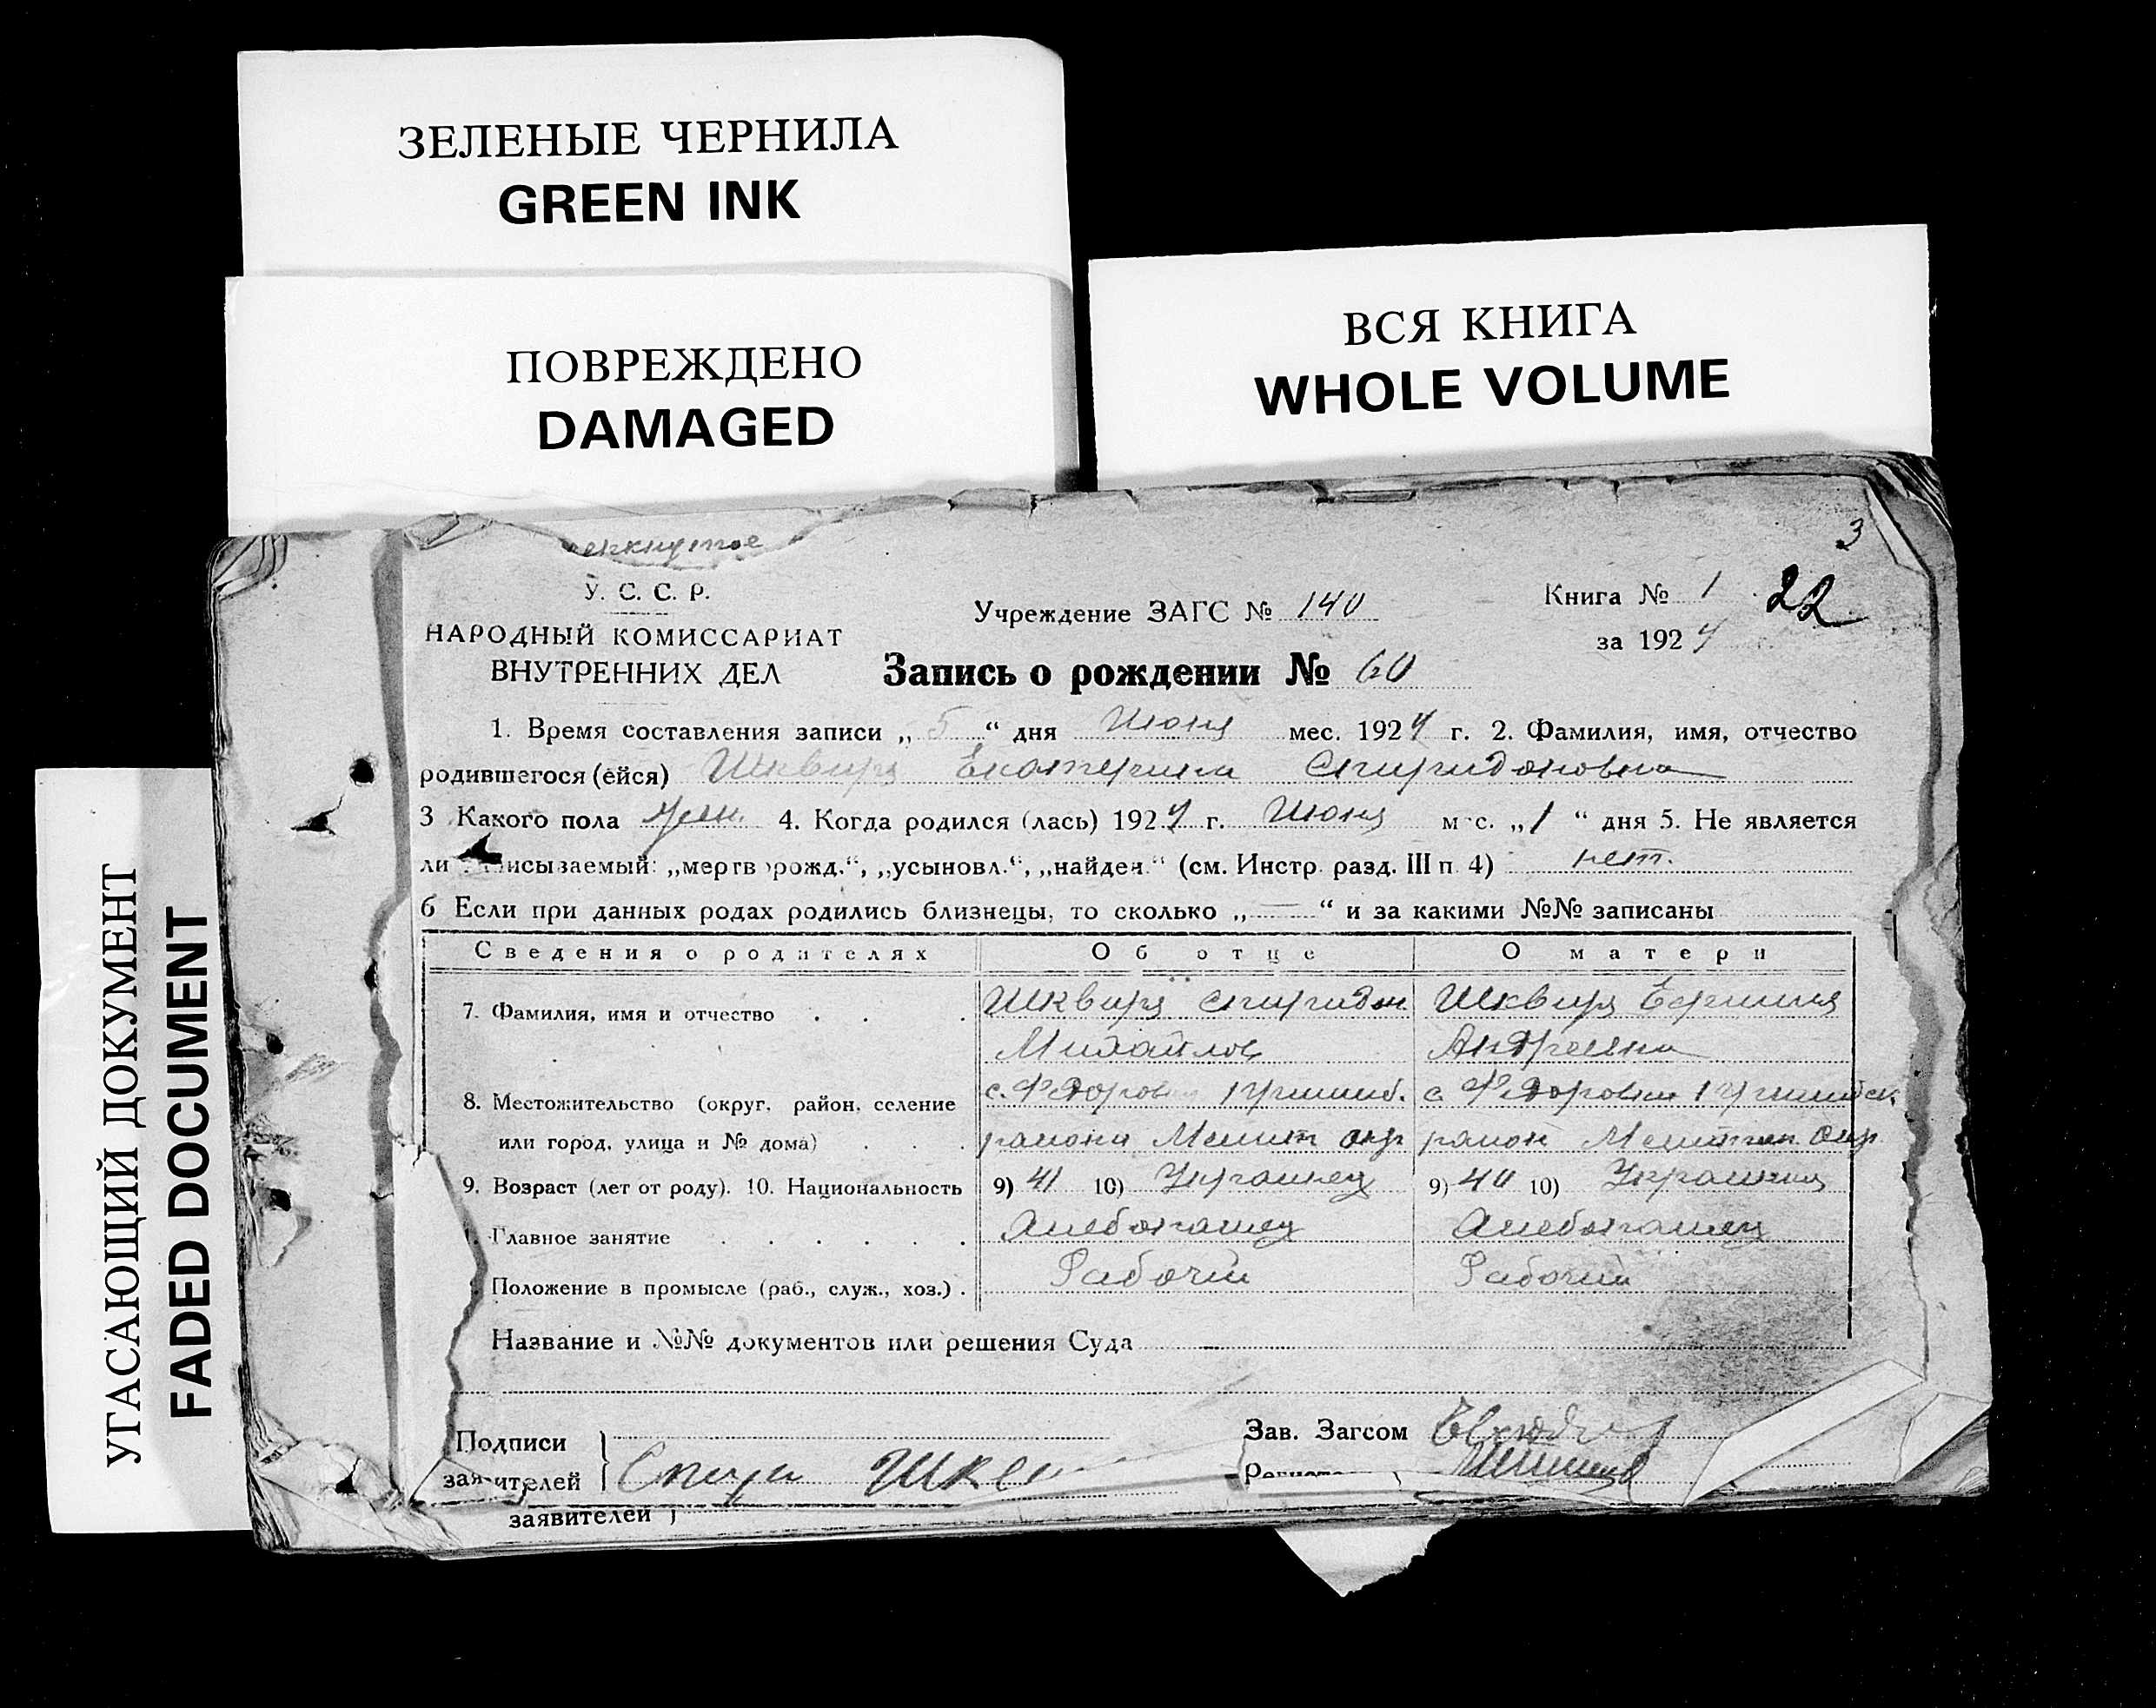 ЗЕЛЕНЫЕ ЧЕРНИЛА
GREEN INK
ПОВРЕЖДЕНО
DAMAGED
ВСЯ КНИГА
WHOLE VOLUME
УГАСАЮЩИЙ ДОКУМЕНТ
FADED DOCUMENT
3
У. С. С. Р.
НАРОДНЫЙ КОМИССАРИАТ
ВНУТРЕННИХ ДЕЛ
Учреждение ЗАГС № 140
Книга № 1 22
за 1924
Запись о рождении № 60
1. Время составления записи „ 5 “ дня Июня мес. 1924 г. 2. Фамилия, имя, отчество
родившегося (ейся) Шквиря Екатерина Спиридоновна
3 Какого пола жен. 4. Когда родился (лась) 1924 г. Июня мес. „1“ дня 5. Не является
ли записываемый: „мертворожд.“, „усыновл.“, „найден.“ (см. Инстр. разд. III п. 4) нет.
6 Если при данных родах родились близнецы, то сколько „—“ и за какими №№ записаны
Сведения о родителях Об отце О матери
7. Фамилия, имя и отчество . . . Шквиря Спиридон Шквиря
Михайлов Андреевна
8. Местожительство (округ, район, селение с. с.
или город, улица и № дома) . . . района Мелит окр район окр
9. Возраст (лет от роду). 10. Национальность 9) 41 10) Украинец 9) 40 10)
Главное занятие . . . . . . Хлебопашец Хлебопашец
Положение в промысле (раб., служ., хоз.) . Рабочий Рабочий
Название и №№ документов или решения Суда —
Подписи
заявителей } Спири Шкв
Зав. Загсом
заявителей )